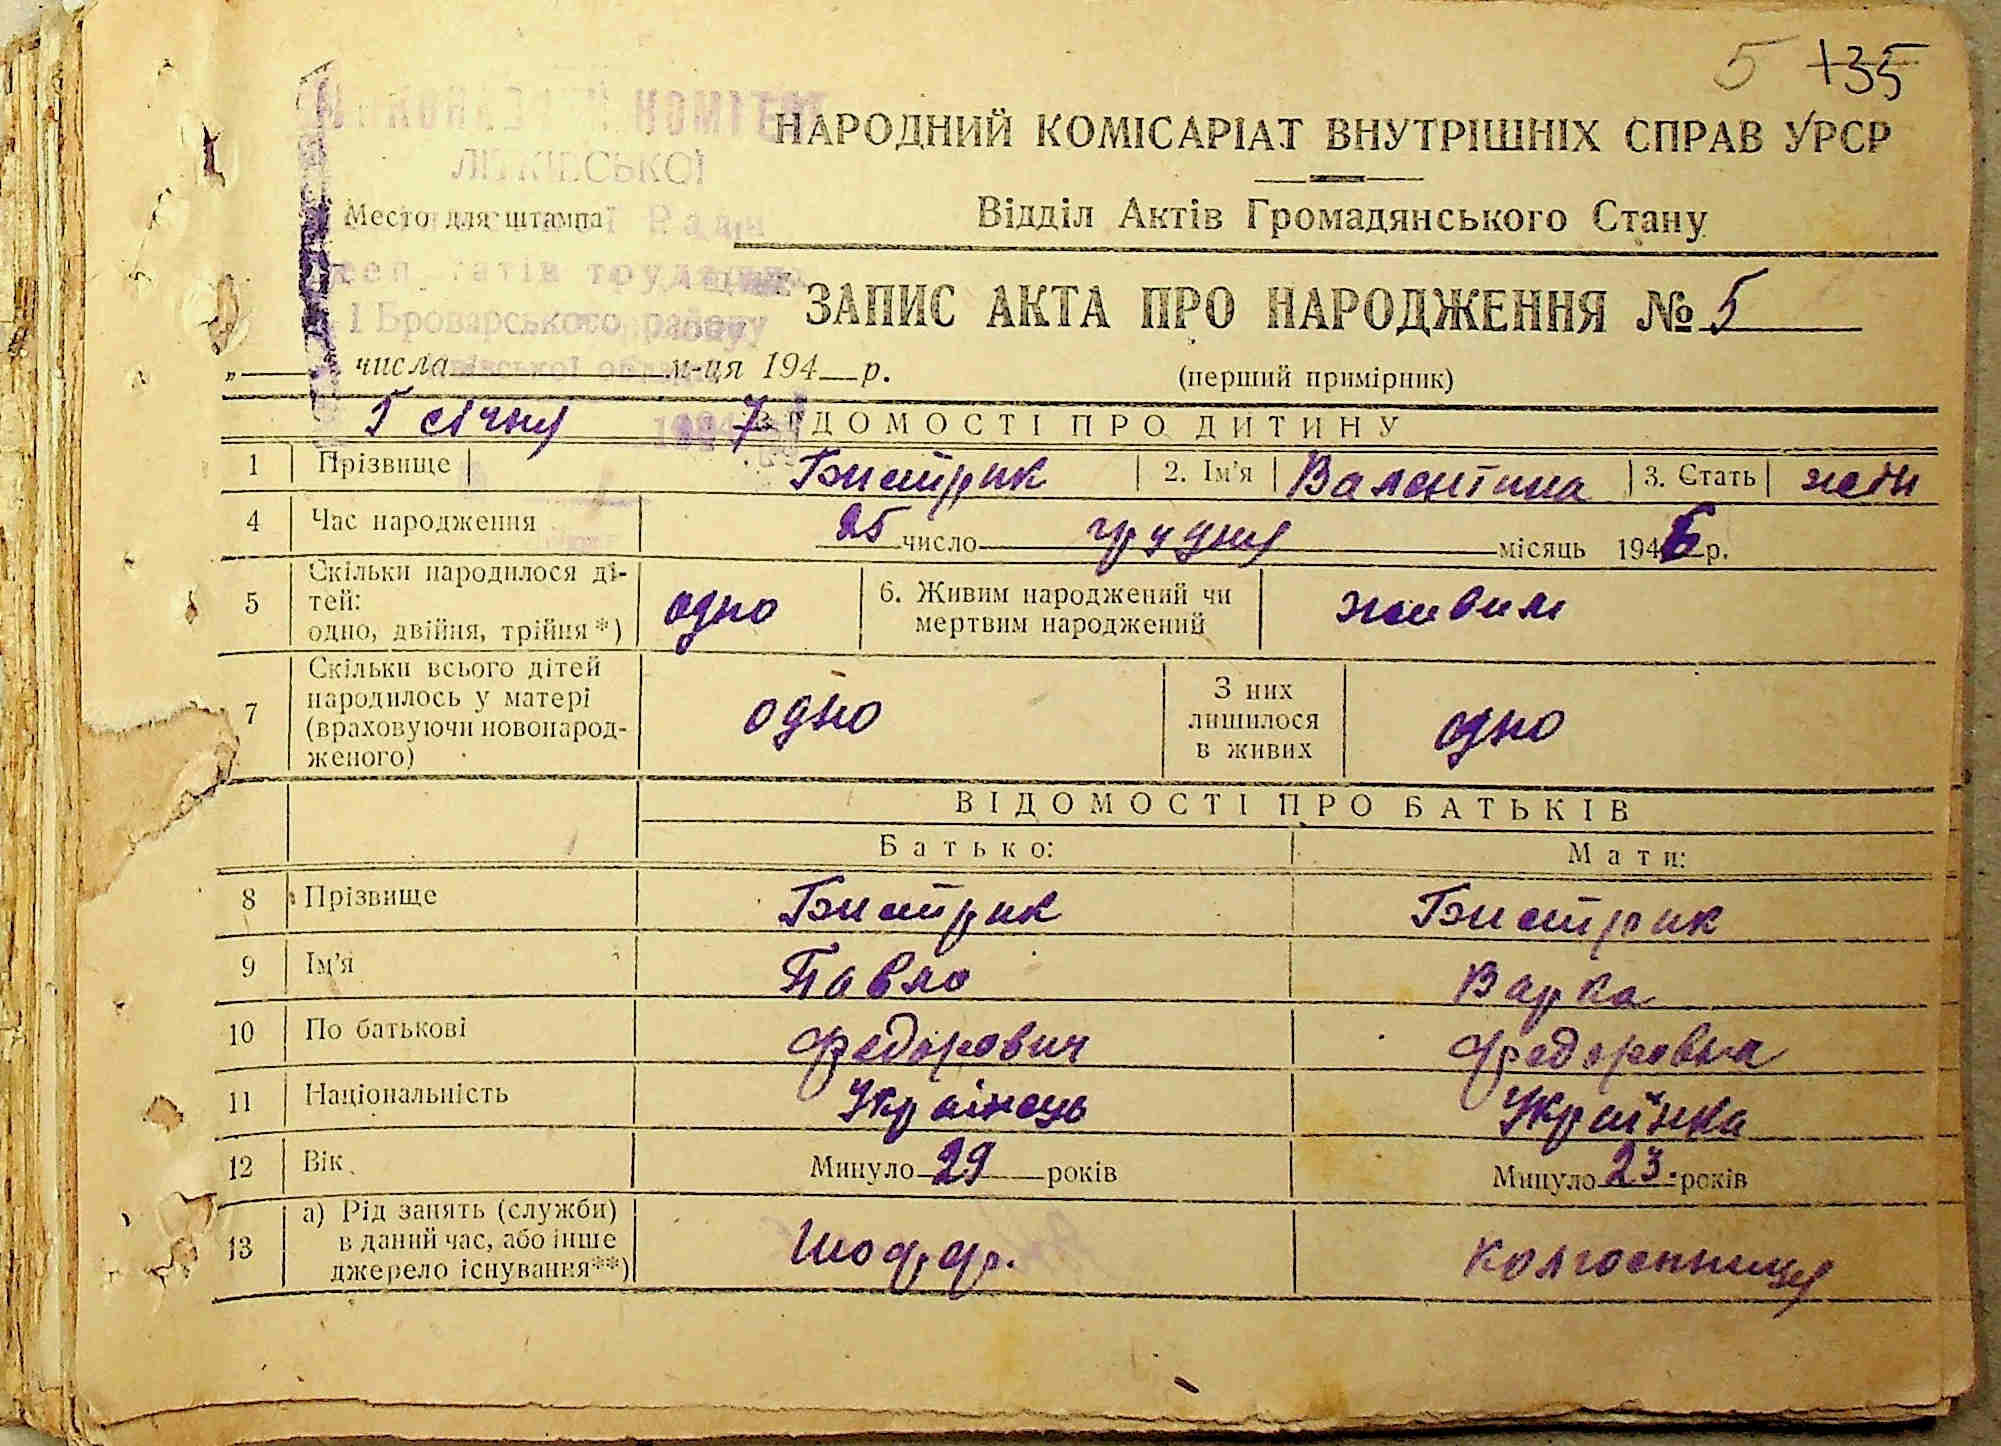 5 135
НАРОДНИЙ КОМІСАРІАТ ВНУТРІШНІХ СПРАВ УРСР
Место для штампа
Відділ Актів Громадянського Стану
ЗАПИС АКТА ПРО НАРОДЖЕННЯ № 5
" числа м-ця 194 р.
(перший примірник)
5 січня 7
ВІДОМОСТІ ПРО ДИТИНУ
1 Прізвище Бистрик 2. Ім'я Валентина 3. Стать жін
4 Час народження 25 число грудня місяць 1946 р.
5 Скільки народилося ді-
тей:
одно, двійня, трійня*)
одно
6. Живим народжений чи
мертвим народжений
живим
7 Скільки всього дітей
народилось у матері
(враховуючи новонарод-
женого)
одно
З них
лишилося
в живих
одно
ВІДОМОСТІ ПРО БАТЬКІВ
Батько: Мати:
8 Прізвище Бистрик Бистрик
9 Ім'я Павло Варка
10 По батькові Федорович Федоровна
11 Національність Українець Українка
12 Вік Минуло 29 років Минуло 23. років
13 а) Рід занять (служби)
в даний час, або інше
джерело існування**)
Шофер. колгоспниця
ЛІТКІВСЬКОЇ
Ради
Броварського району